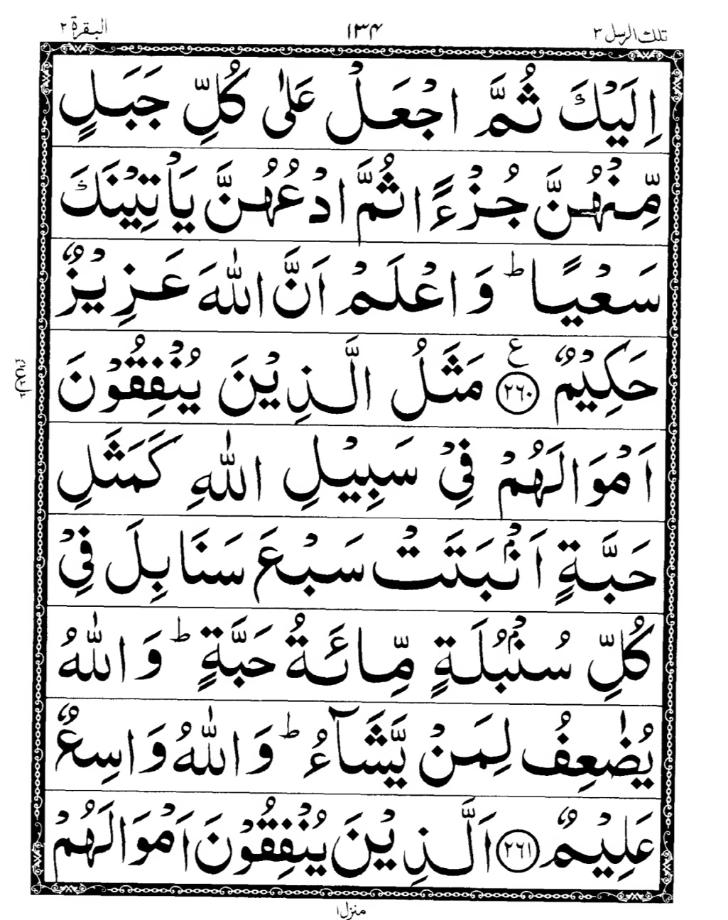 تلك الرسل ٣ ١٣٤ البقرة ٢
اِلَيْكَ ثُمَّ اجْعَلْ عَلٰى كُلِّ جَبَلٍ
مِّنْهُنَّ جُزْءًا ثُمَّ ادْعُهُنَّ يَاْتِيْنَكَ
سَعْيًا ؕ وَاعْلَمْ اَنَّ اللّٰهَ عَزِيْزٌ
حَكِيْمٌ ۧ ﴿۲۶۰﴾ مَثَلُ الَّذِيْنَ يُنْفِقُوْنَ
اَمْوَالَهُمْ فِيْ سَبِيْلِ اللّٰهِ كَمَثَلِ
حَبَّةٍ اَنْۢبَتَتْ سَبْعَ سَنَابِلَ فِيْ
كُلِّ سُنْۢبُلَةٍ مِّائَةُ حَبَّةٍ ؕ وَاللّٰهُ
يُضٰعِفُ لِمَنْ يَّشَآءُ ؕ وَاللّٰهُ وَاسِعٌ
عَلِيْمٌ ﴿۲۶۱﴾ اَلَّذِيْنَ يُنْفِقُوْنَ اَمْوَالَهُمْ
منزل ١